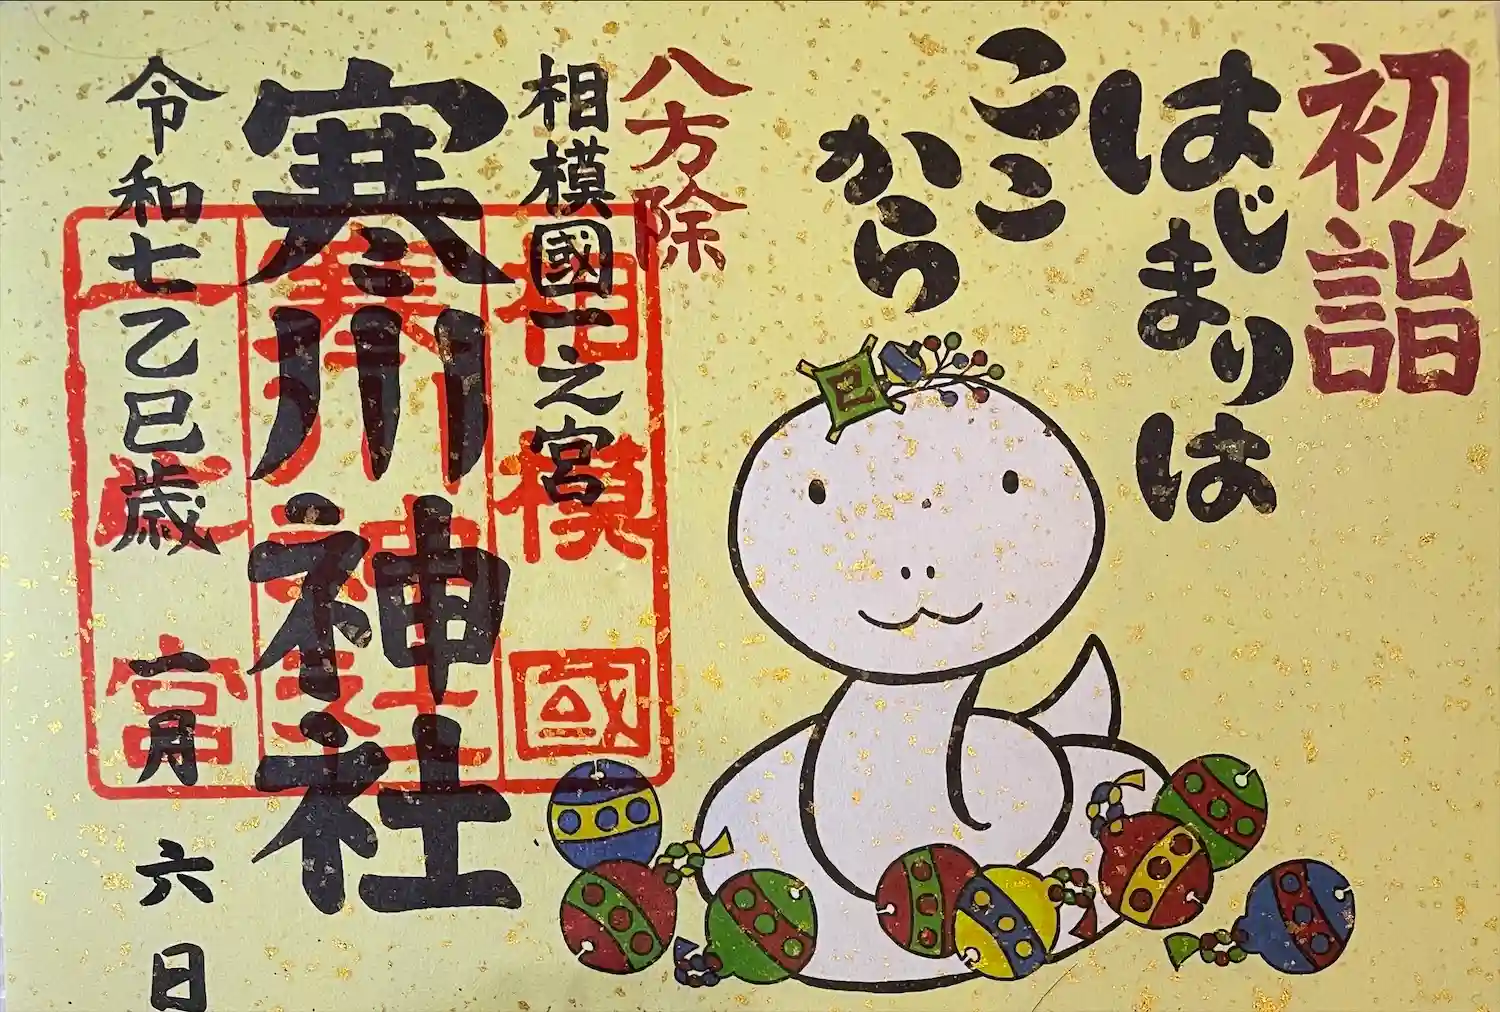 初詣
はじまりは
ここ
から
八方除
相模國一之宮
寒川神社
令和七乙巳歳
一月六日
相模國
寒川神社
一之宮
巳